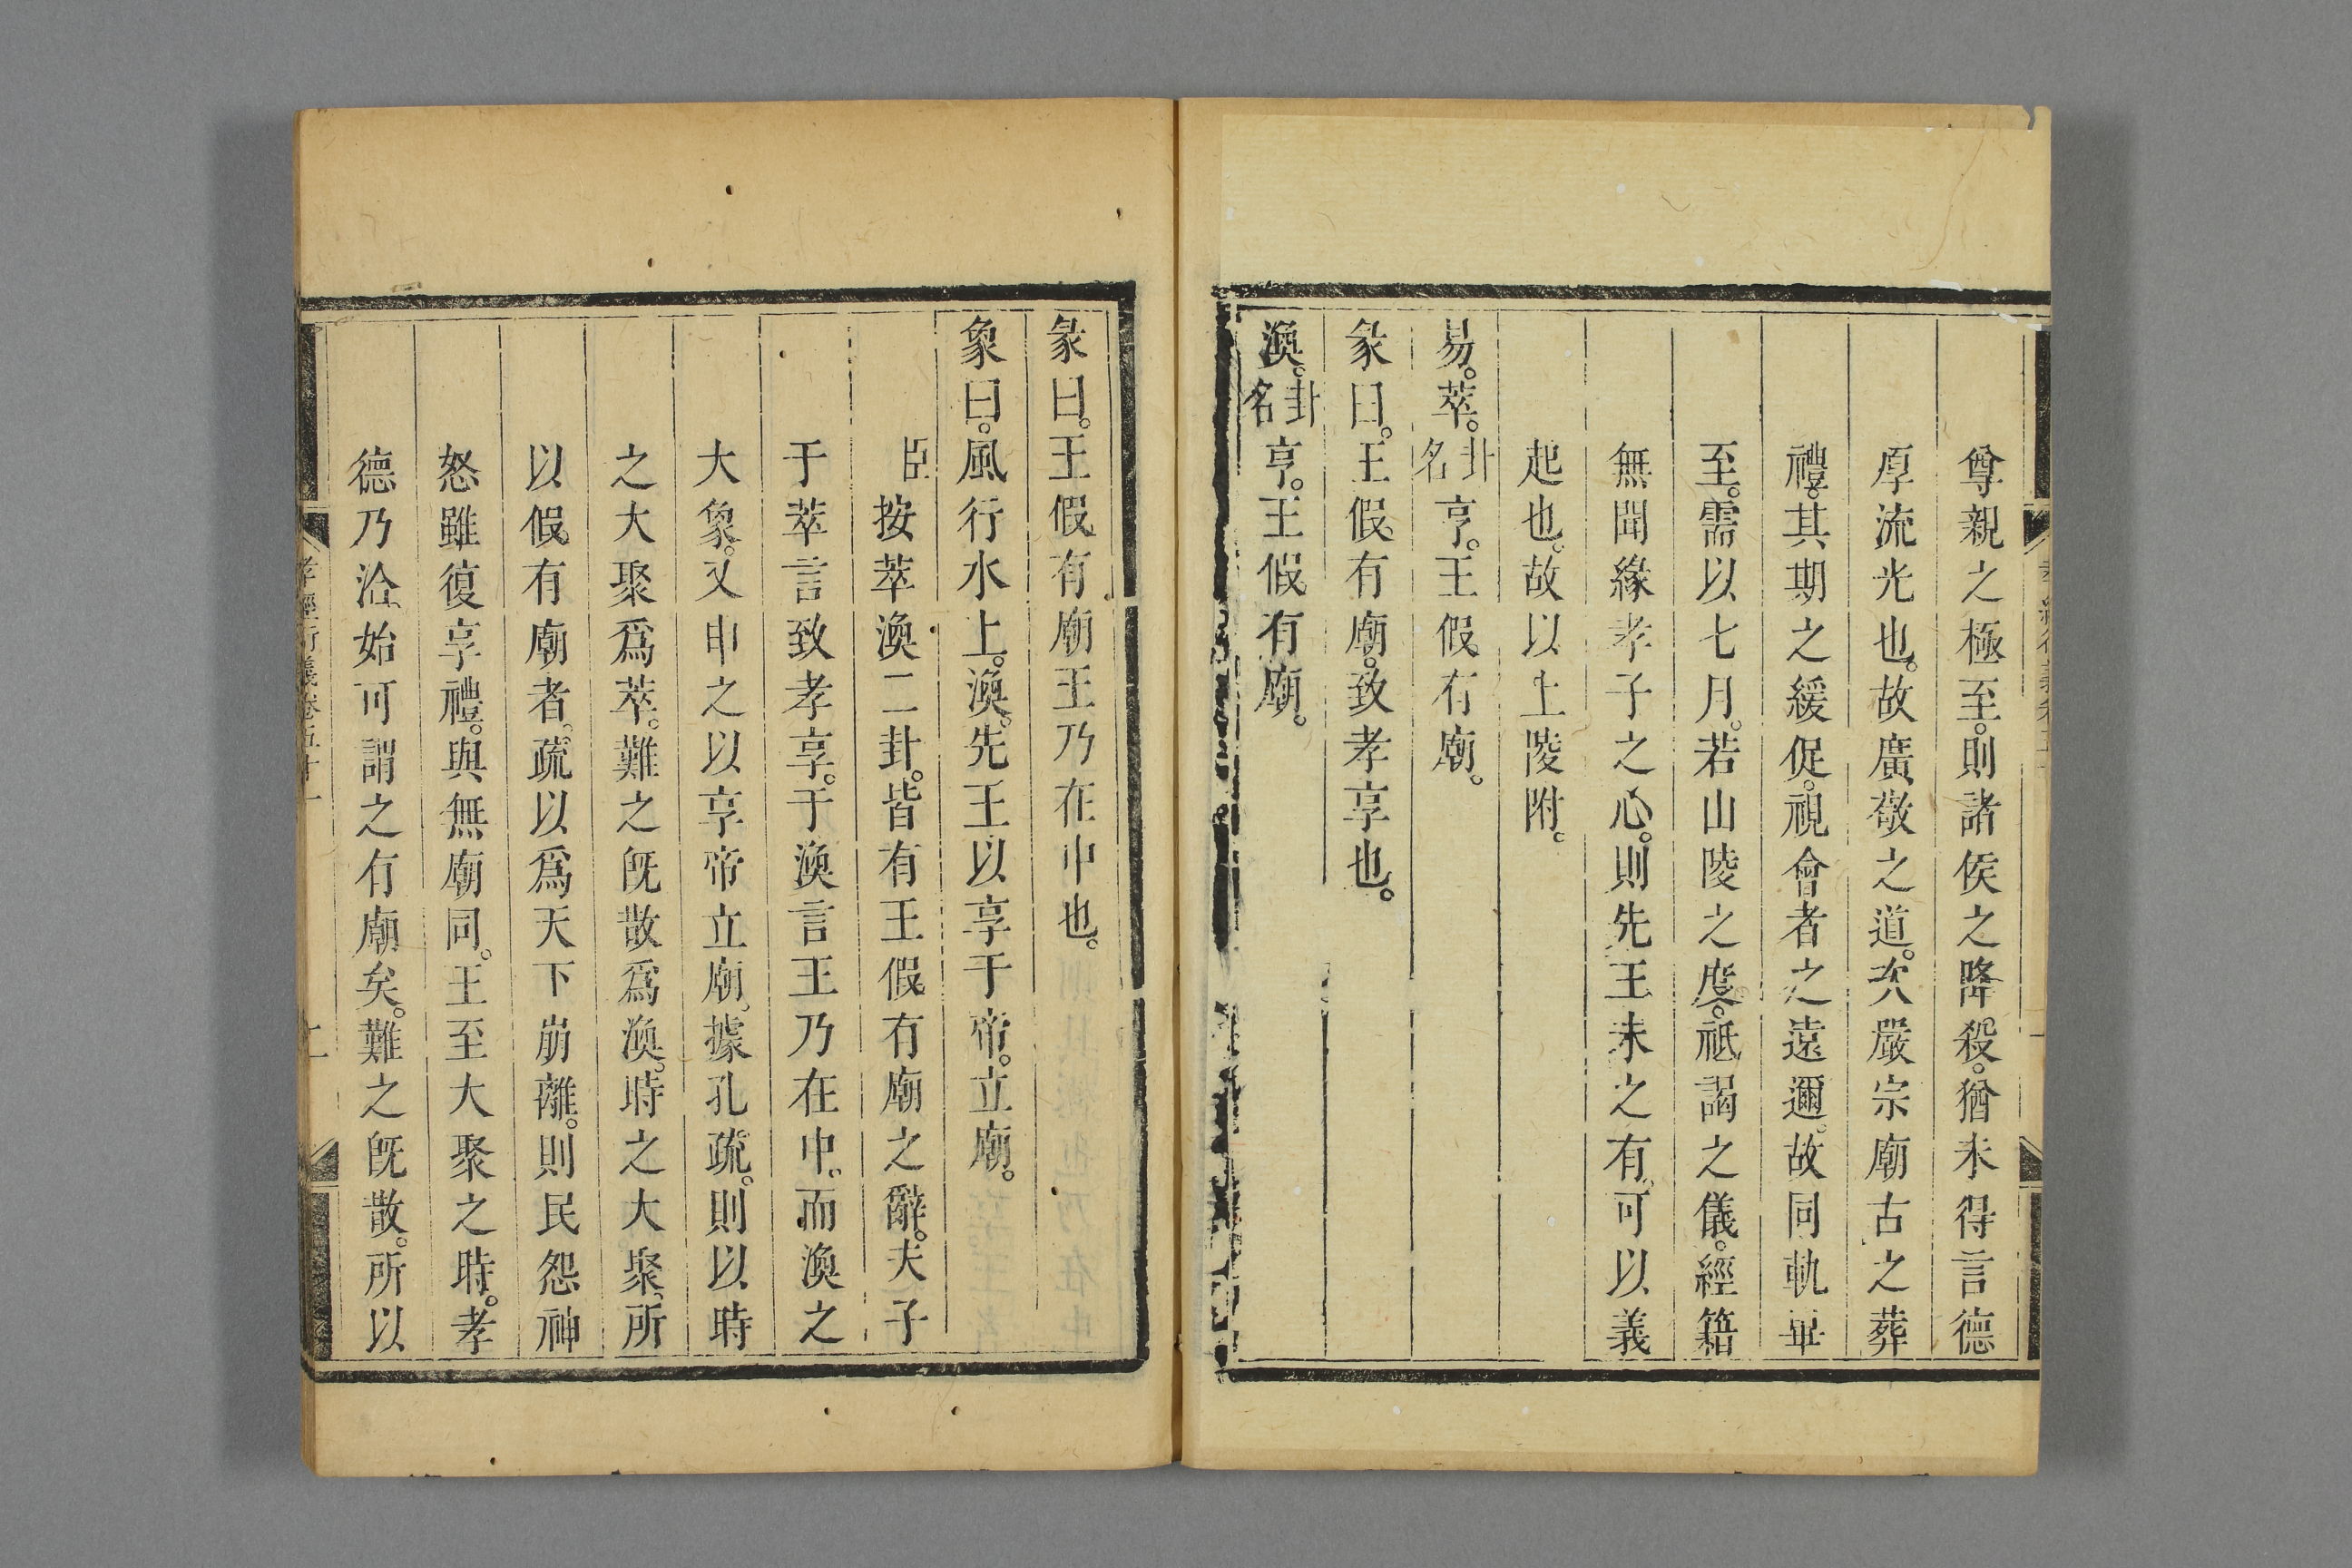 尊親之極至。則諸侯之降殺。猶未得言德
厚流光也。故廣敬之道。次嚴宗廟古之葬
禮。其期之緩促。視會者之遠邇。故同軌畢
至。需以七月。若山陵之度。祗謁之儀。經籍
無聞緣孝子之心。則先王未之有。可以義
起也。故以上陵附。
易。萃。卦名亨。王假有廟。
彖曰。王假有廟。致孝享也。
渙。卦名亨。王假有廟。
彖曰。王假有廟王乃在中也。
象曰。風行水上。渙。先王以享于帝。立廟。
臣按萃渙二卦。皆有王假有廟之辭。夫子
于萃言致孝享。于渙言王乃在中。而渙之
大象。又申之以享帝立廟。據孔疏。則以時
之大聚爲萃。難之旣散爲渙。時之大聚。所
以假有廟者。疏以爲天下崩離。則民怨神
怒雖復享禮。與無廟同。王至大聚之時。孝
德乃洽。始可謂之有廟矣。難之旣散。所以
孝經衍義卷五十一